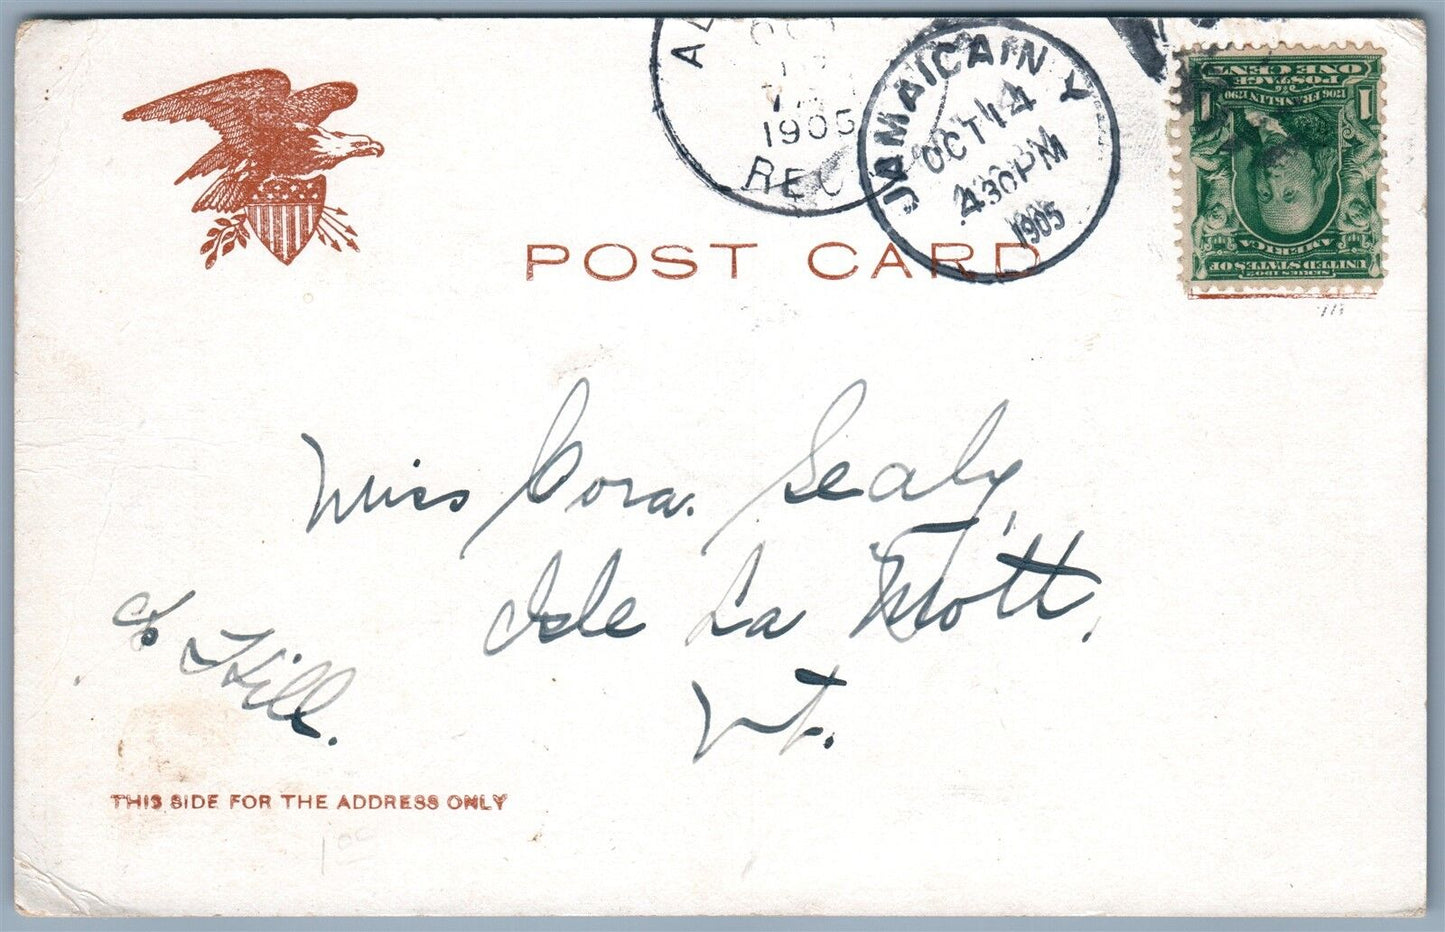 OCT
1905
REC
JAMAICA N Y
OCT 14
430 PM
1905
1
POSTAGE
ONE CENT
1706 FRANKLIN 1790
SERIES 1902
UNITED STATES OF
AMERICA
POST CARD
Miss Cora. Sealy,
Isle La Mott,
Vt.
c/o Hill.
THIS SIDE FOR THE ADDRESS ONLY
1 00